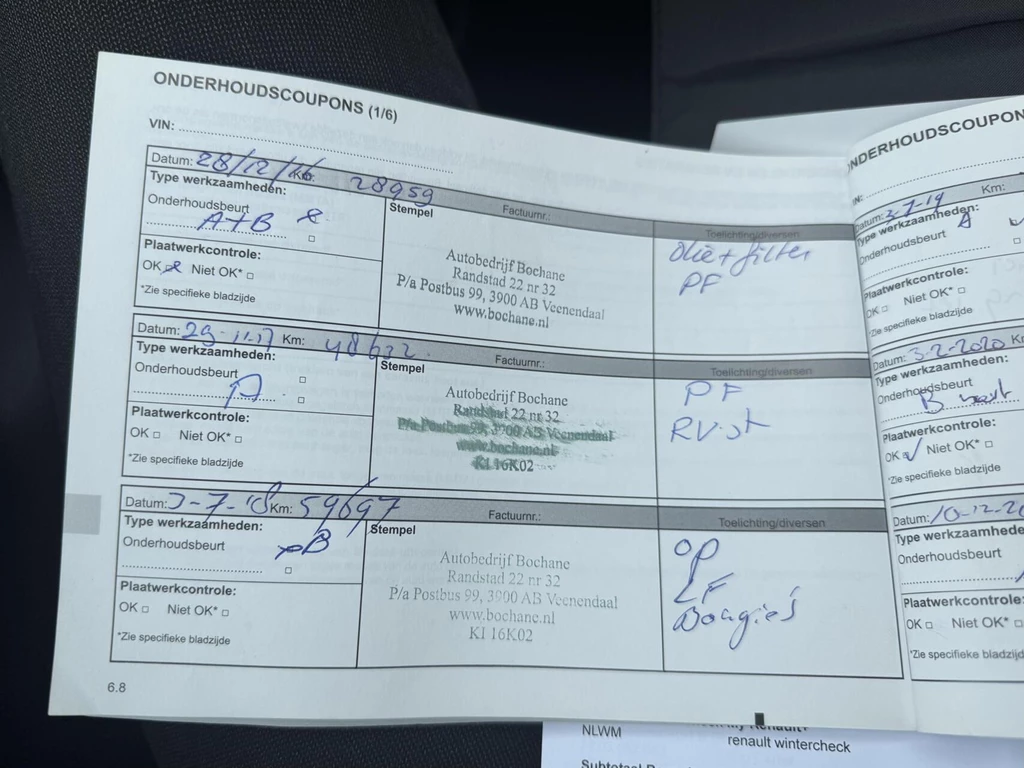 ONDERHOUDSCOUPONS (1/6)
VIN:
Datum: 28/12/16 Km: 28959
Type werkzaamheden:
Onderhoudsbeurt
A+B
Plaatwerkcontrole:
OK Niet OK*
*Zie specifieke bladzijde
Stempel Factuurnr.:
Autobedrijf Bochane
Randstad 22 nr 32
P/a Postbus 99, 3900 AB Veenendaal
www.bochane.nl
Toelichting/diversen
Olie + filter
PF
Datum: 29-11-17 Km: 48622
Type werkzaamheden:
Onderhoudsbeurt
A
Plaatwerkcontrole:
OK Niet OK*
*Zie specifieke bladzijde
Stempel Factuurnr.:
Autobedrijf Bochane
Randstad 22 nr 32
P/a Postbus 99, 3900 AB Veenendaal
www.bochane.nl
KI 16K02
Toelichting/diversen
PF
Datum: 3-7-18 Km: 59697
Type werkzaamheden:
Onderhoudsbeurt
B
Plaatwerkcontrole:
OK Niet OK*
*Zie specifieke bladzijde
Stempel Factuurnr.:
Autobedrijf Bochane
Randstad 22 nr 32
P/a Postbus 99, 3900 AB Veenendaal
www.bochane.nl
KI 16K02
Toelichting/diversen
OP
LF
Bougies
6.8
ONDERHOUDSCOUPON
Datum: 3-7-19 Km:
Type werkzaamheden:
Onderhoudsbeurt A
Plaatwerkcontrole:
OK Niet OK*
*Zie specifieke bladzijde
Datum: 3-2-2020
Type werkzaamheden:
Onderhoudsbeurt
B beurt
Plaatwerkcontrole:
OK Niet OK*
*Zie specifieke bladzijde
Datum: 10-12-20
Type werkzaamheden:
Onderhoudsbeurt
Plaatwerkcontrole:
OK Niet OK*
*Zie specifieke bladzijde
NLWM
renault wintercheck